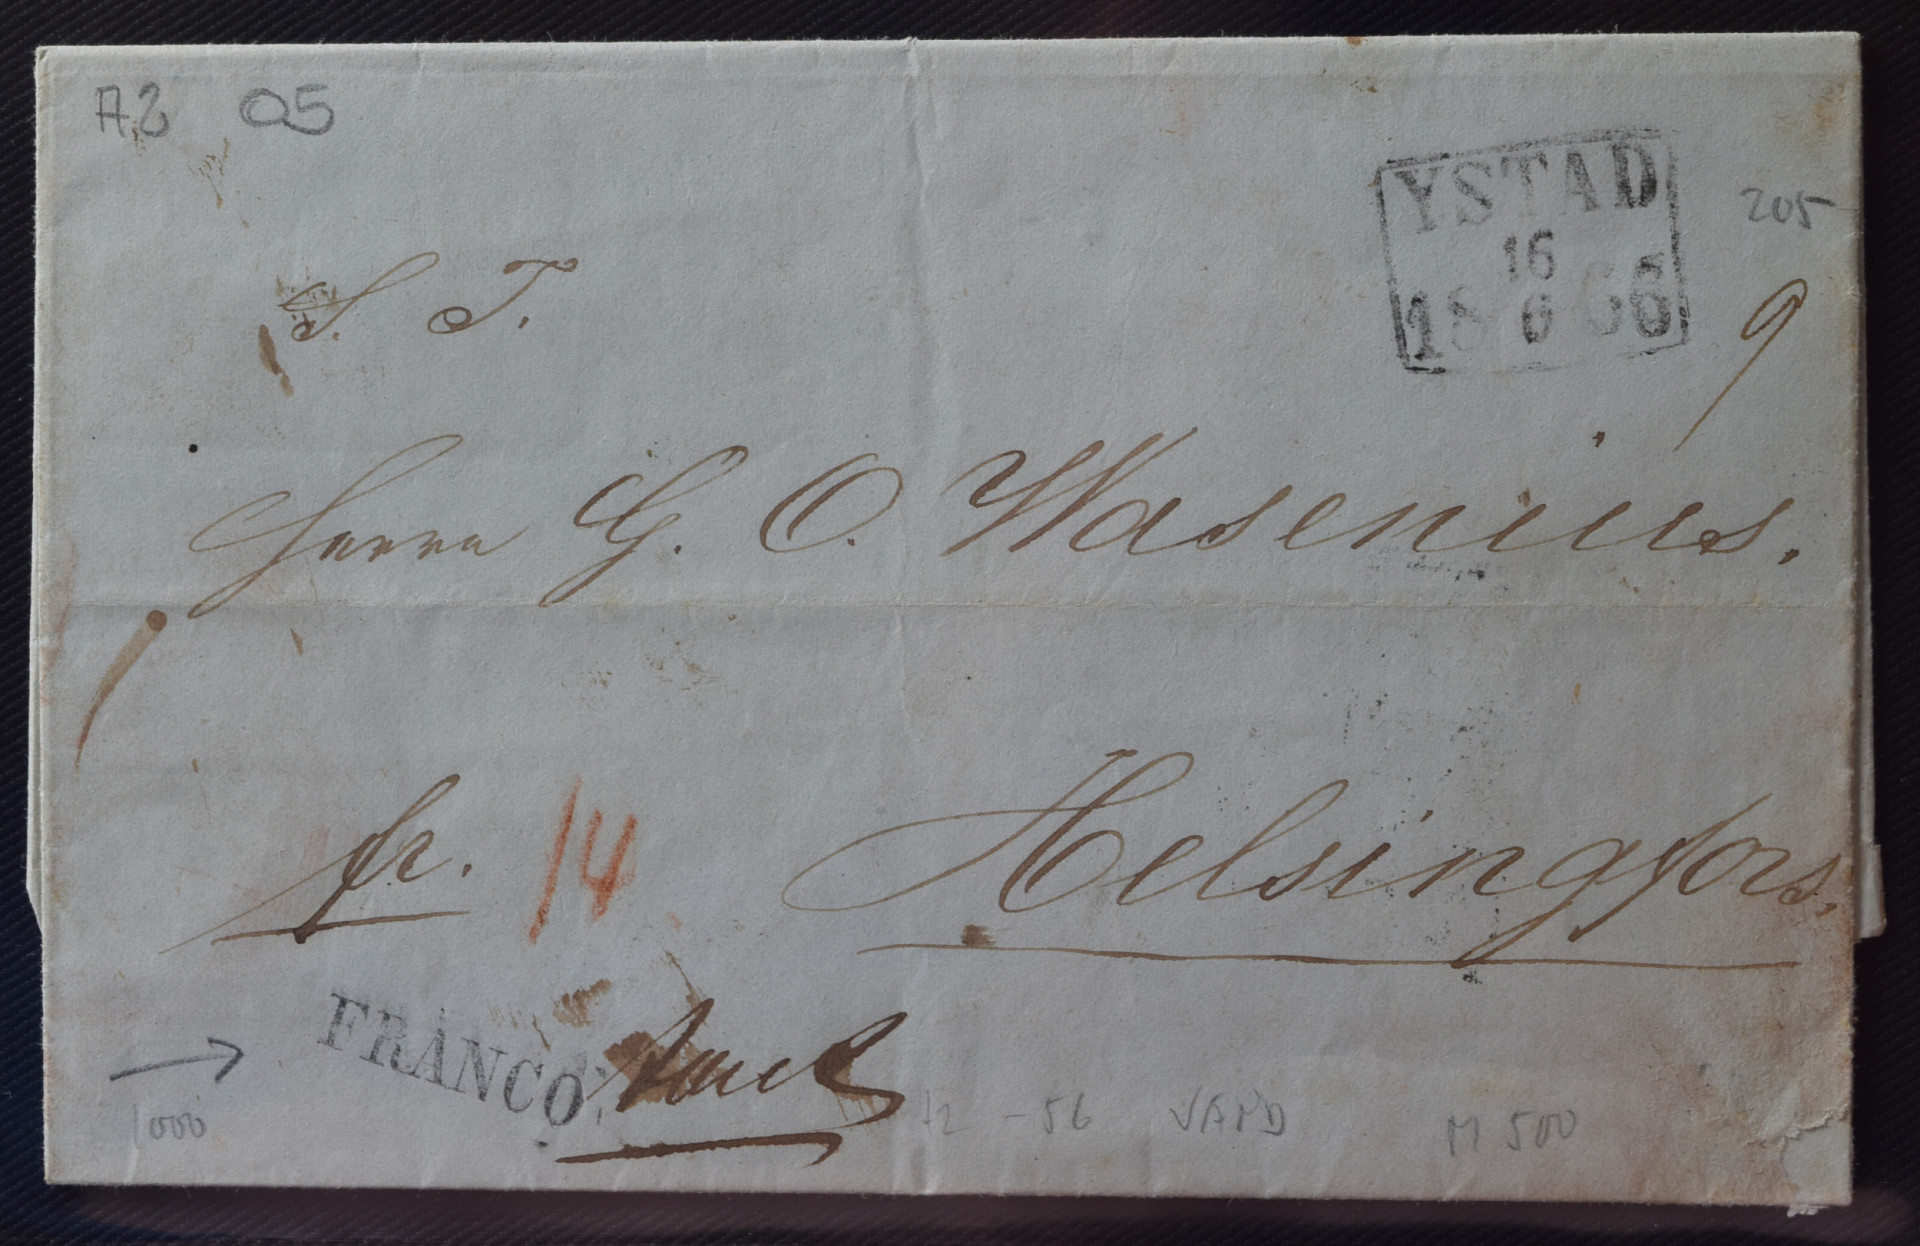 A2 05
YSTAD
16
18 6 66
205
S. T.
9
Herrn G. O. Wasenius.
fr. 14 Helsingfors.
FRANCO.
1000 12 - 56 VAPD M 500